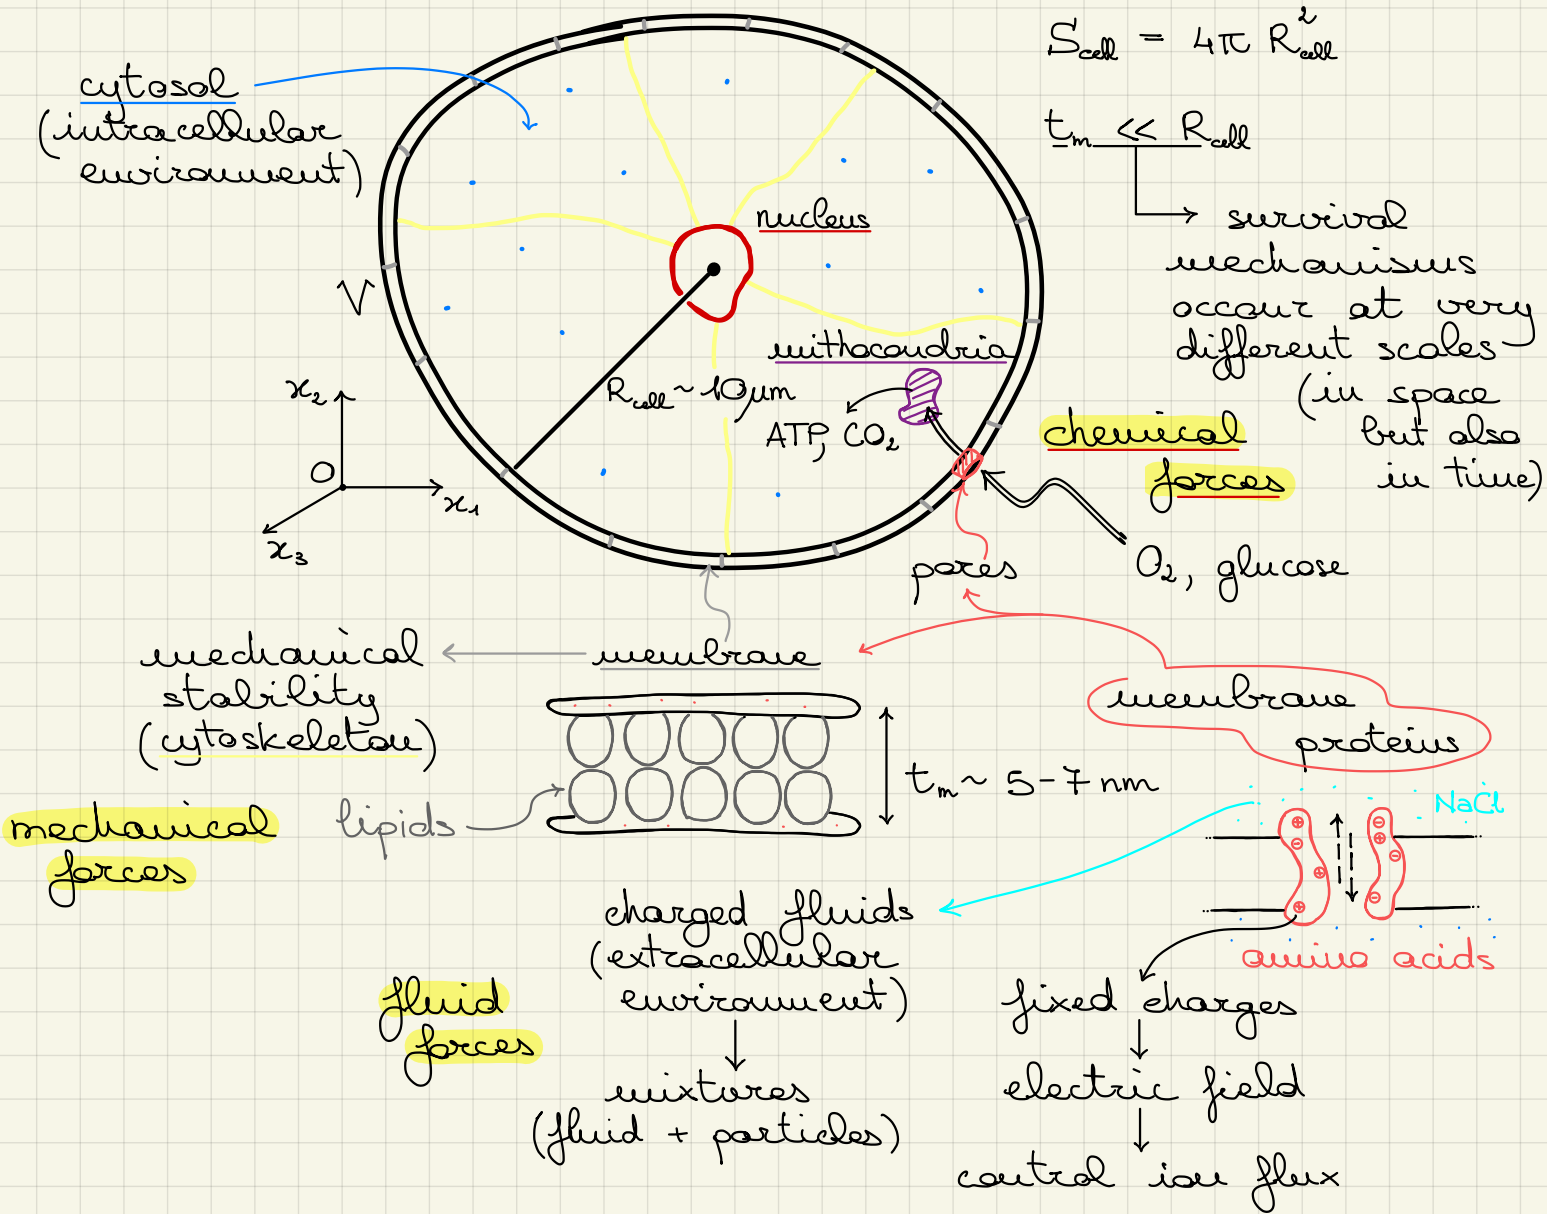 S_cell = 4π R²_cell
cytosol
(intracellular
environment)
t_m << R_cell
survival
mechanisms
occour at very
different scales
(in space
but also
in time)
nucleus
V
mithocondria
R_cell ~ 10 μm
ATP, CO₂
chemical
forces
x₂
O
x₁
x₃
pores
O₂, glucose
mechanical
stability
(cytoskeleton)
membrane
membrane
proteins
t_m ~ 5-7 nm
lipids
mechanical
forces
NaCl
⊕ ⊖
⊖ ⊕
⊖
⊕
⊕ ⊖
amino acids
charged fluids
(extracellular
environment)
fluid
forces
mixtures
(fluid + particles)
fixed charges
electric field
control ion flux